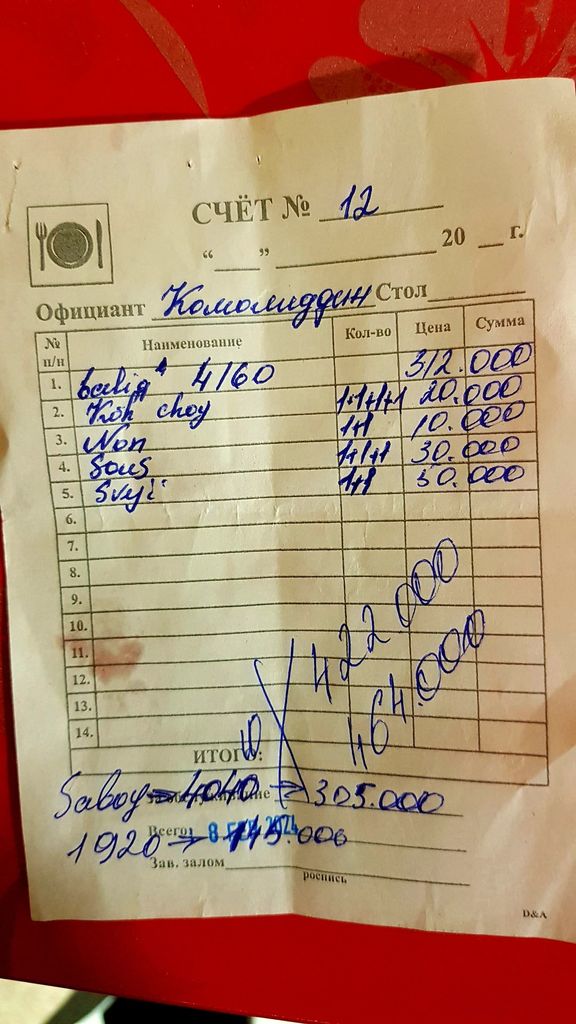 СЧЁТ № 12
“ ” 20 г.
Официант Комолиддин Стол
№ п/н Наименование Кол-во Цена Сумма
1. baliq 4160 312.000
2. Kok choy 1+1+1+1 20.000
3. Non 1+1 10.000
4. Sous 1+1+1 30.000
5. Svyji 1+1 50.000
6.
7.
8.
9.
10.
11.
12.
13.
14.
422.000
464.000
ИТОГО: 10
Saboy = 4040 = 305.000
Всего:
1920 → 145.000
Зав. залом
роспись
D&A